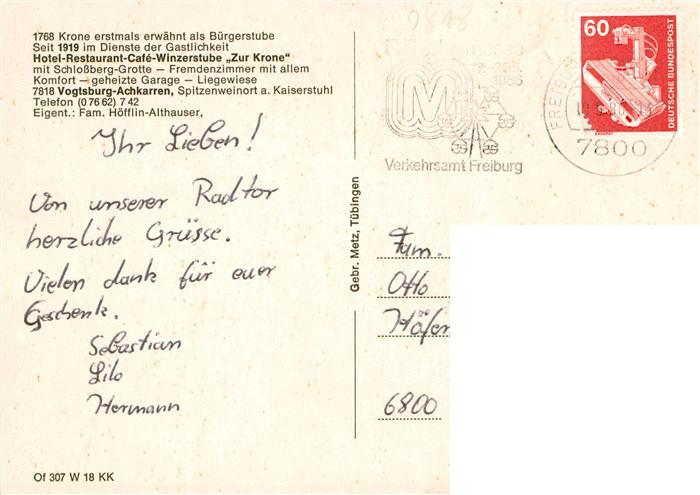 1768 Krone erstmals erwähnt als Bürgerstube
Seit 1919 im Dienste der Gastlichkeit
Hotel-Restaurant-Café-Winzerstube „Zur Krone“
mit Schloßberg-Grotte – Fremdenzimmer mit allem
Komfort – geheizte Garage – Liegewiese
7818 Vogtsburg-Achkarren, Spitzenweinort a. Kaiserstuhl
Telefon (07662) 742
Eigent.: Fam. Höfflin-Althauser,
Ihr Lieben!
Von unserer Radtor
herzliche Grüsse.
Vielen dank für euer
Geschenk.
Sebastian
Lilo
Hermann
Of 307 W 18 KK
Gebr. Metz, Tübingen
M
1986
Verkehrsamt Freiburg
7800
60
DEUTSCHE BUNDESPOST
Fam.
Otto
Höfer
6800